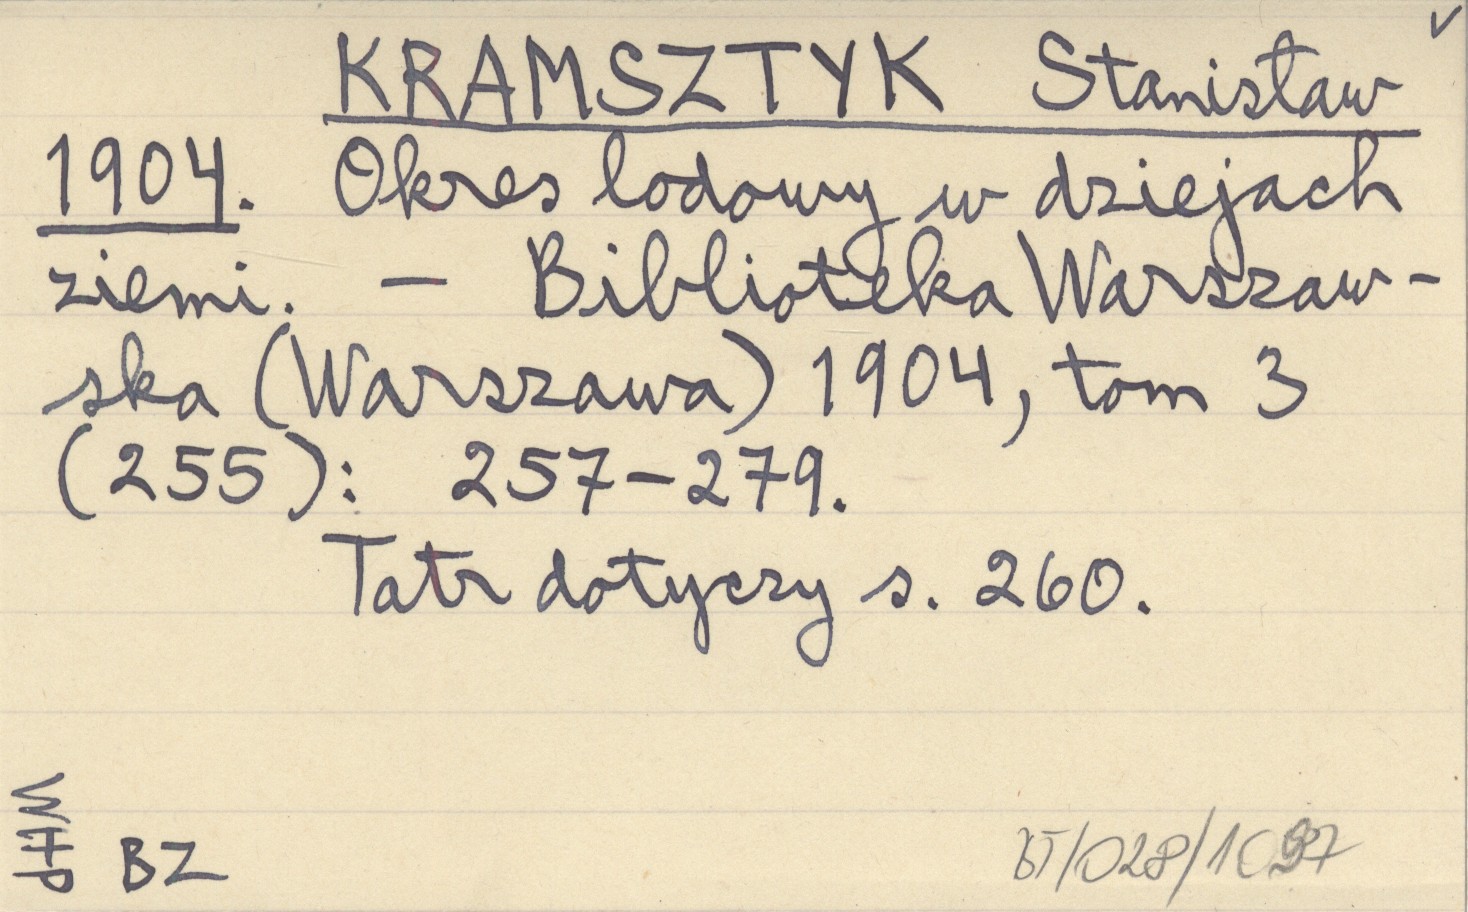 ✓
KRAMSZTYK Stanisław
1904. Okres lodowy w dziejach
ziemi. — Biblioteka Warszaw-
ska (Warszawa) 1904, tom 3
(255): 257-279.
Tatr dotyczy s. 260.
BZ